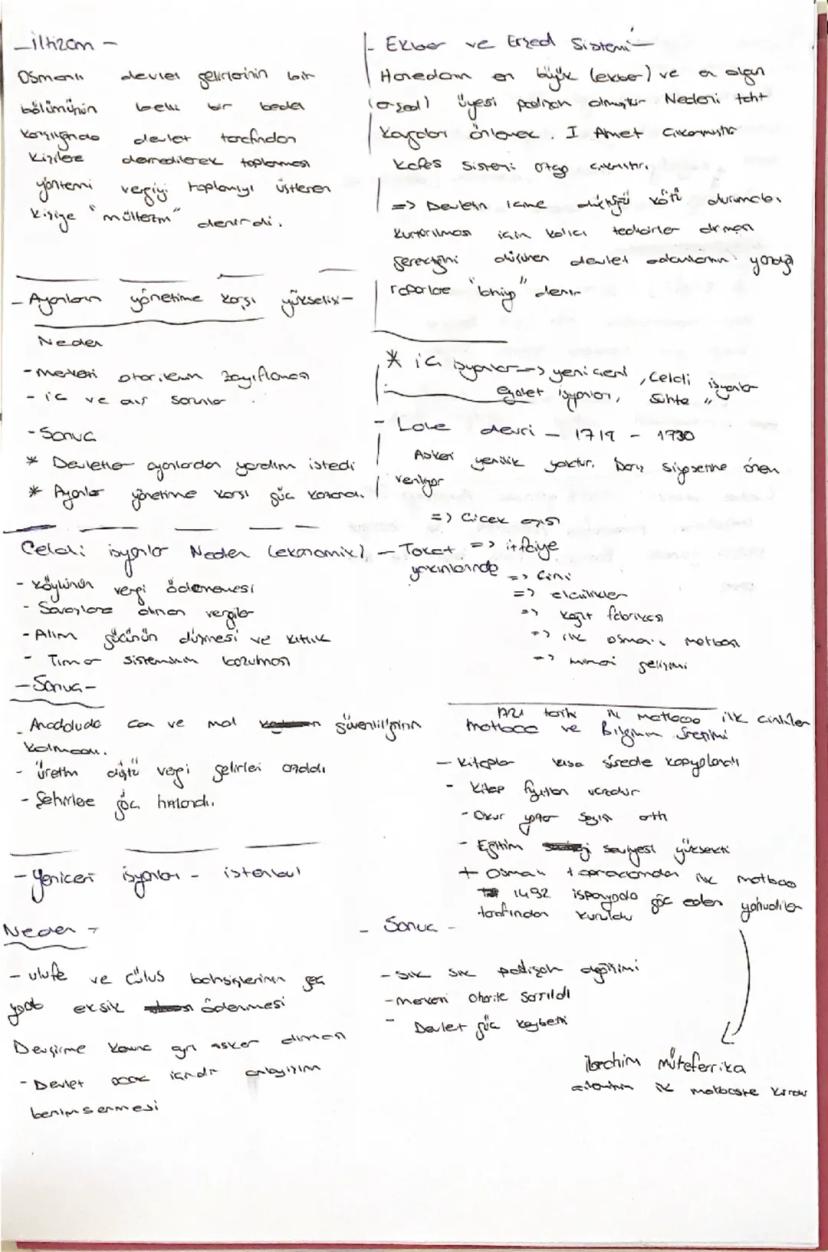 - iltizam -
Osmanlı devlet gelirlerinin bir
bölümünün belli bir bedel
karşılığında devlet tarafından
kişilere devredilerek toplanması
yöntemi vergiyi toplamayı üstlenen
kişiye "mültezim" denirdi.
- Ayanların yönetime karşı yükselişi -
Neden
- merkezi otoritenin zayıflaması
- iç ve dış sorunlar
- Sonuç
* Devletler ayanlardan yardım istedi
* Ayanlar yönetime karşı güç kazandı.
Celali isyanlar Neden (ekonomik)
- köylünün vergi ödememesi
- Savaşlara alınan vergiler
- Alım gücünün düşmesi ve kıtlık
- Tımar sisteminin bozulması
- Sonuç -
- Anadoluda can ve mal güvenliliğinin
kalmaması.
- üretim düştü vergi gelirleri azaldı
- Şehirlere göç hızlandı.
- Yeniçeri isyanlar - istanbul
Neden -
- ulufe ve Cülus bahşişlerinin geç
yada eksik ödenmesi
Devşirme kanuna aykırı asker alınması
- Devlet ocak içindir anlayışının
benimsenmesi
- Ekber ve Erşed Sistemi -
Hanedanın en büyük (ekber) ve en olgun
(erşed) üyesi padişah olmuştur Nedeni taht
kavgaları önlemek. I Ahmet çıkarmıştır
Kafes Sistemi ortaya çıkmıştır.
=> Devletin içine düştüğü kötü durumdan
kurtarılması için kalıcı tedbirler alınması
gerektiğini düşünen devlet adamlarının yazdığı
raporlara "layiha" denir
* iç isyanlar -> yeniçeri, Celali isyanlar
eyalet isyanları, Suhte "
- Lale devri - 1718 - 1730
Askeri yenilik yoktur. Barış siyasetine önem
veriliyor
=> Çiçek aşısı
- Tokat => itfaiye
yakınlarında => Çini
=> elçilikler
=> kağıt fabrikası
=> ilk osmanlı matbaası
=> mimari gelişimi
1721 tarihi ilk matbaa ilk
matbaa ve Bilginin Üretimi
- Kitaplar kısa sürede kopyalandı
- Kitap fiyatları ucuzdur
- Okur yazar sayısı arttı
- Eğitim seviyesi yükseldi
+ Osmanlı topraklarından ilk matbaa
1492 ispanyada göç eden yahudiler
tarafından kuruldu
- Sonuç -
- sık sık padişah değişimi
- merkezi otorite sarsıldı
- Devlet güç kaybetti
ibrahim müteferrika
ilk matbaasını kuran